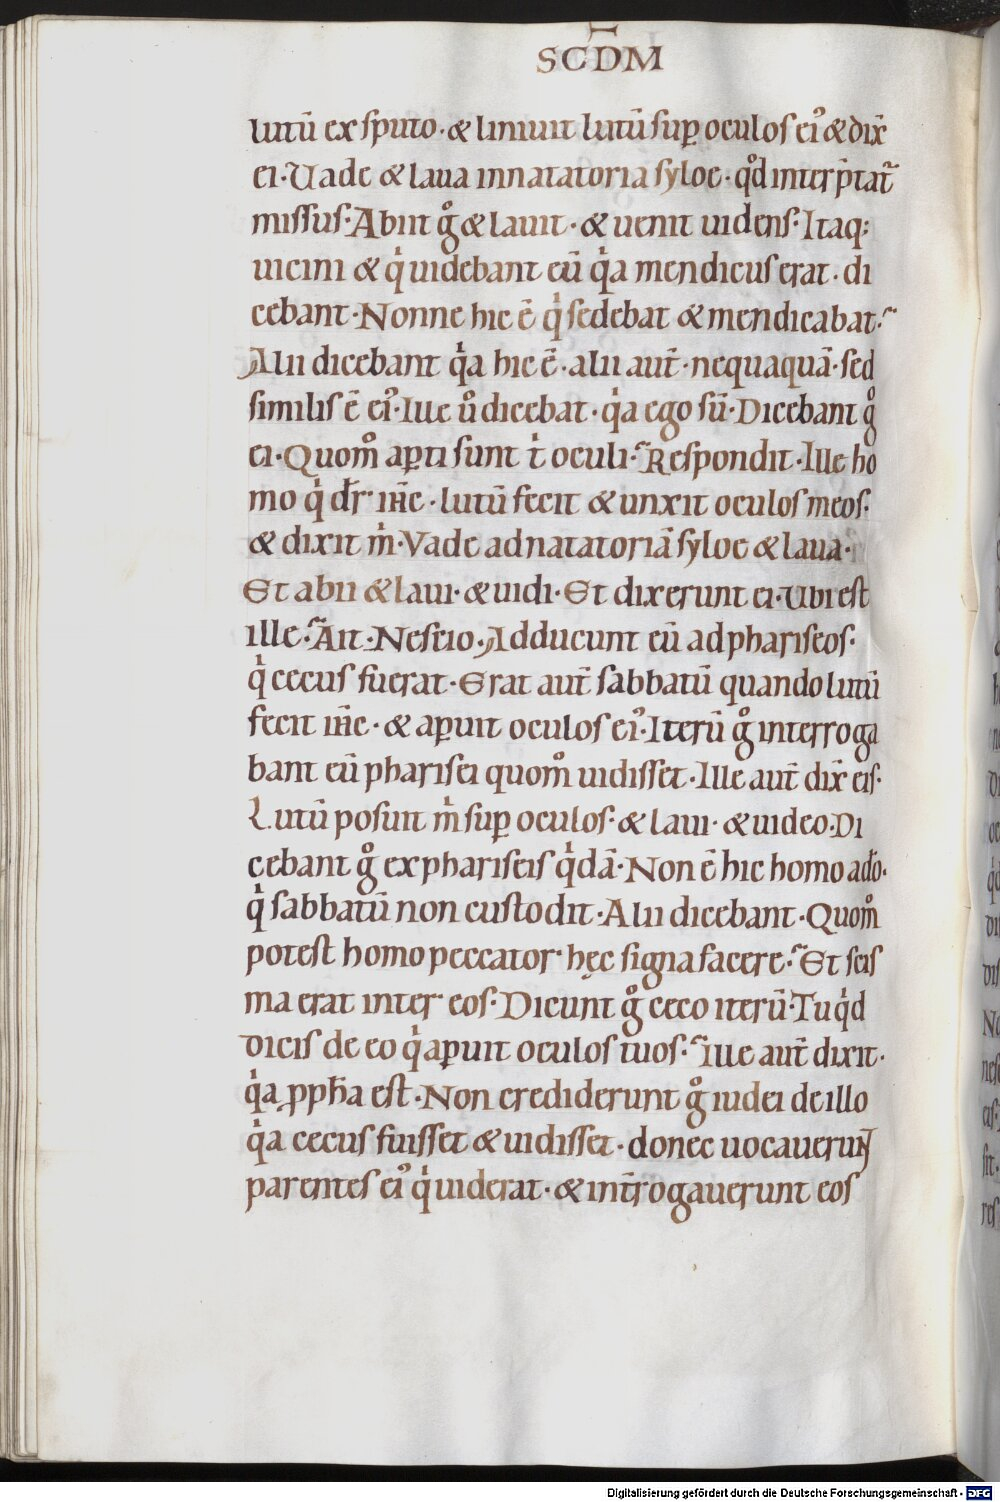 SCDM̄
lutū ex sputo· & liniuit lutū sup̱ oculos ei᾿ & dix̄
ei· Vade & laua in natatoria syloe· qͦd interp̄tat᷑
missus· Abiit gͦ & lauit· & uenit uidens· Itaq;
uicini & qͥ uidebant eū qͥa mendicus erat· di
cebant· Nonne hic ē qͥ sedebat & mendicabat·᷉
Alii dicebant qͥa hic ē· alii aut̄· nequaquā· sed
similis ē ei᾿· Ille uͦ dicebat· qͥa ego sū· Dicebant gͦ
ei· Quom̊ ap̱ti sunt tͥ oculi·᷉ Respondit· Ille ho
mo qͥ dr̄ ih̄c· lutū fecit & unxit oculos meos·
& dixit mͥ· Vade ad natatoriā syloe & laua·
Et abii & laui· & uidi· Et dixerunt ei· Vbi est
ille·᷉ Ait· Nescio· Adducunt eū ad phariseos·
qͥ cecus fuerat· Erat aut̄ sabbatū quando lutū
fecit ih̄c· & ap̱uit oculos ei᾿· Iterū gͦ interroga
bant eū pharisei quom̊ uidisset· Ille aut̄ dix̄ eis·
Lutū posuit mͥ sup̱ oculos· & laui· & uideo· Di
cebant gͦ ex phariseis qͥdā· Non ē hic homo a do̅·
qͥ sabbatū non custodit· Alii dicebant· Quom̊
potest homo peccator hęc signa facere·᷉ Et scis
ma erat inter eos· Dicunt gͦ ceco iterū· Tu qͥd
dicis de eo qͥ ap̱uit oculos tuos·᷉ Ille aut̄ dixit·
qͥa ꝓph̄a est· Non crediderunt gͦ iudei de illo
qͥa cecus fuisset & uidisset· donec uocauerunt
parentes ei᾿ qͥ uiderat· & int̄rogauerunt eos
Digitalisierung gefördert durch die Deutsche Forschungsgemeinschaft - DFG